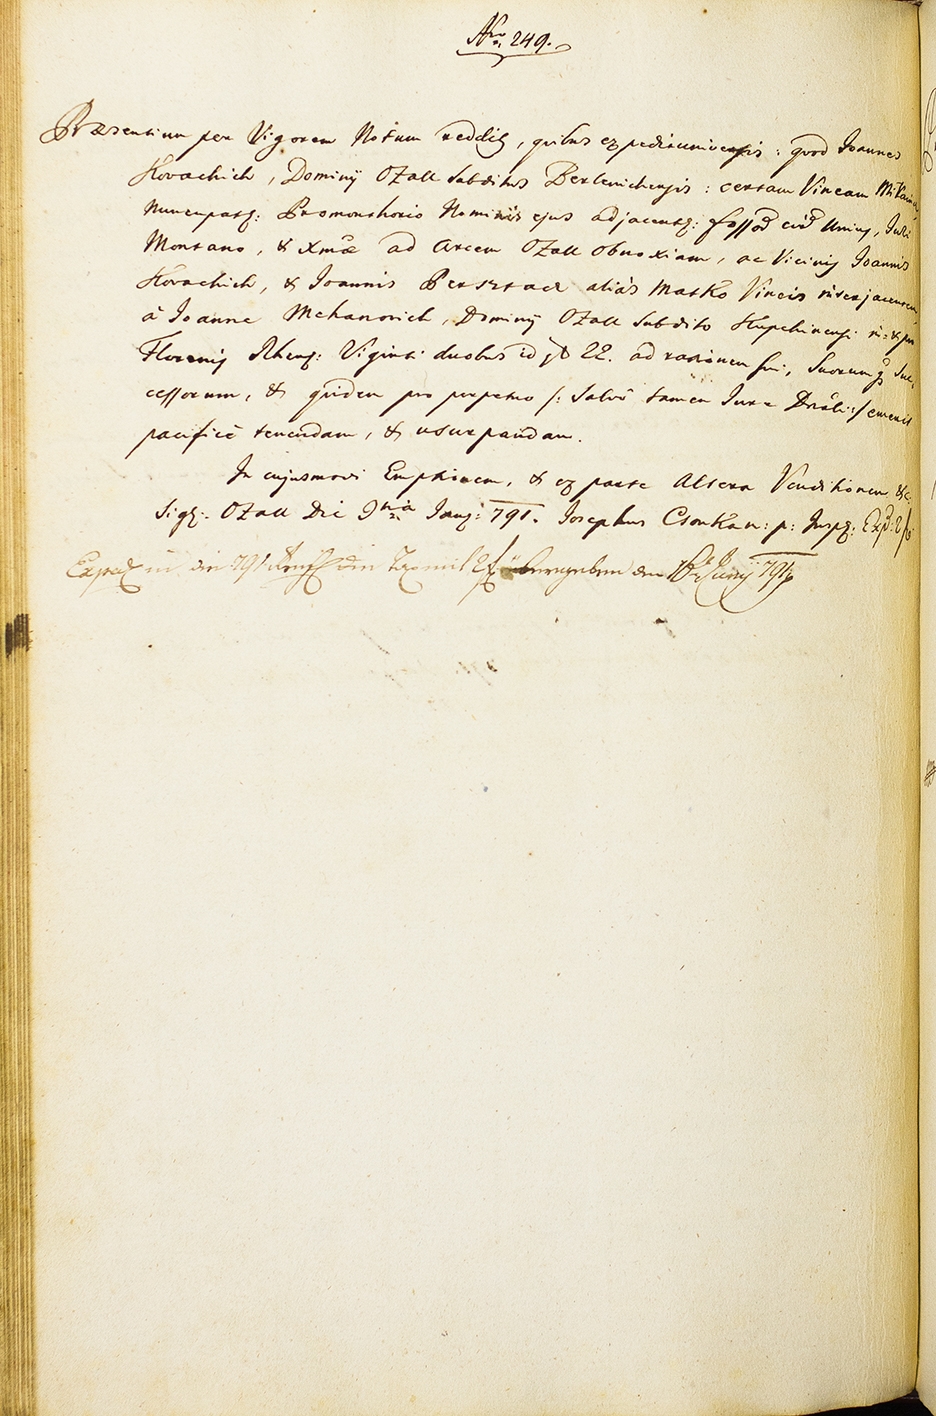 Nro 249.
Præsentium per Vigorem Notum reddit, quibus expedit universis: quod Joannes
Kovachich, Dominÿ Ozall Subditus Berlenichensis: certam Vineam
nuncupatæ: Promonthorio Nominis ejus adjacentæ: fossor:, Juri
Montano, & Xmæ ad Arcem Ozall obnoxiam, ac Vicinis Joannis
Kovachich, & Joannis Persztacz aliàs Matko Vineis interjacentem,
à Joanne Mehanovich, Dominÿ Ozall Subdito
Florenis Rhens: Viginti duobus id f 22. ad rationem sui, Suorumq Suc-
cessorum, & quidem pro perpetuo /: Salvo tamen Jure Dnâli :/ emerit
pacificè tenendam, & usurpandam.
In cujusmodi Emptionem, & ex parte Altera Venditionem &c.
Sigs: Ozall Die 9na Janÿ: 791. Josephus Csonkan: p: Insp:
Exped in die 791 übergeben den 18t Juny 791